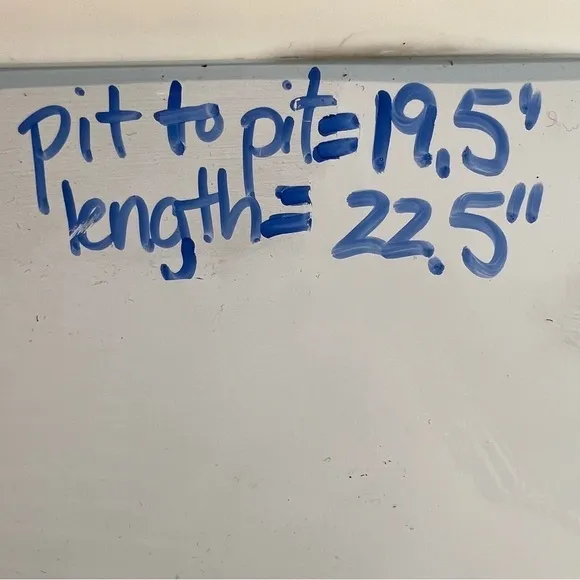 pit to pit=19.5"
length= 22.5"